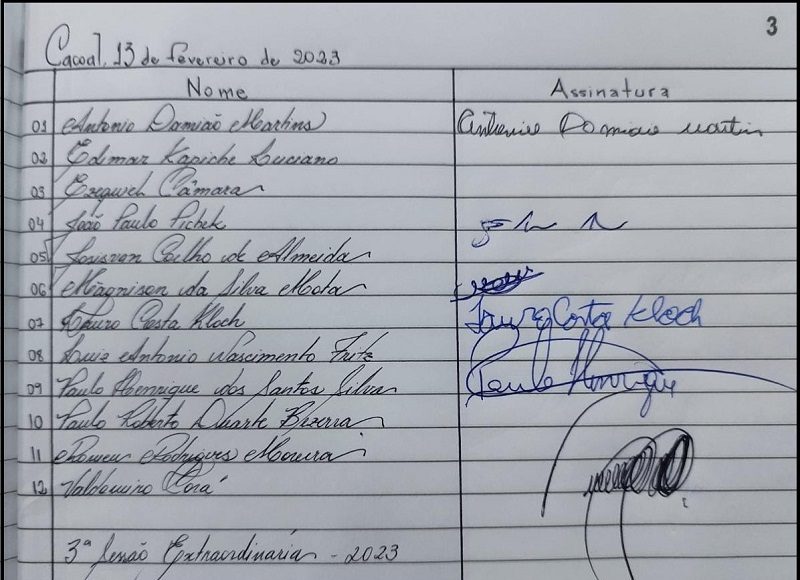 3
Cacoal, 13 de fevereiro de 2023
Nome Assinatura
01 Antonio Damião Martins Antonio Damião Martins
02 Edimar Kapiche Luciano
03 Ezequiel Câmara
04 João Paulo Pichek
05 Josivan Coelho de Almeida
06 Magnison da Silva Mota
07 Lauro Costa Kloch Lauro Costa Kloch
08 Luiz Antonio Nascimento Fritz
09 Paulo Henrique dos Santos Silva Paulo Henrique
10 Paulo Roberto Duarte Bezerra
11 Romeu Rodrigues Moreira
12 Valdomiro Corá
3ª Sessão Extraordinária - 2023